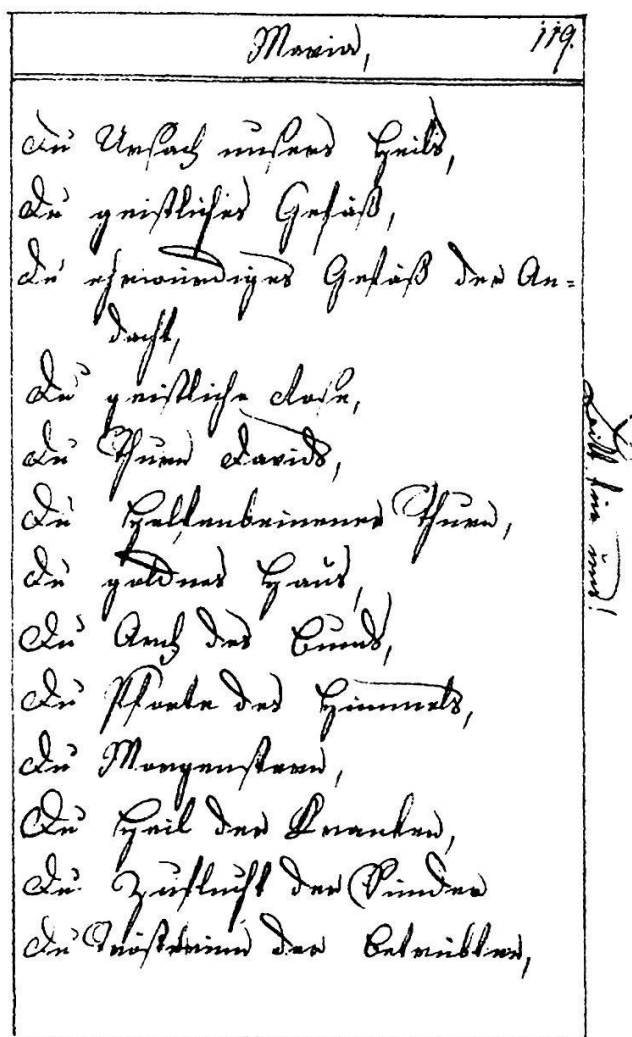 Maria,
119.
Du Ursach unsers Heils,
Du geistliches Gefäß,
Du ehrwürdiges Gefäß der An=
dacht,
Du geistliche Rose,
Du Thurn Davids,
Du Helfenbeinener Thurn,
Du goldnes Haus,
Du Arch des Bunds,
Du Pforte des Himmels,
Du Morgenstern,
Du Heil der Kranken,
Du Zuflucht der Sünder
Du Trösterinn der Betrübten,
Bitt für uns!